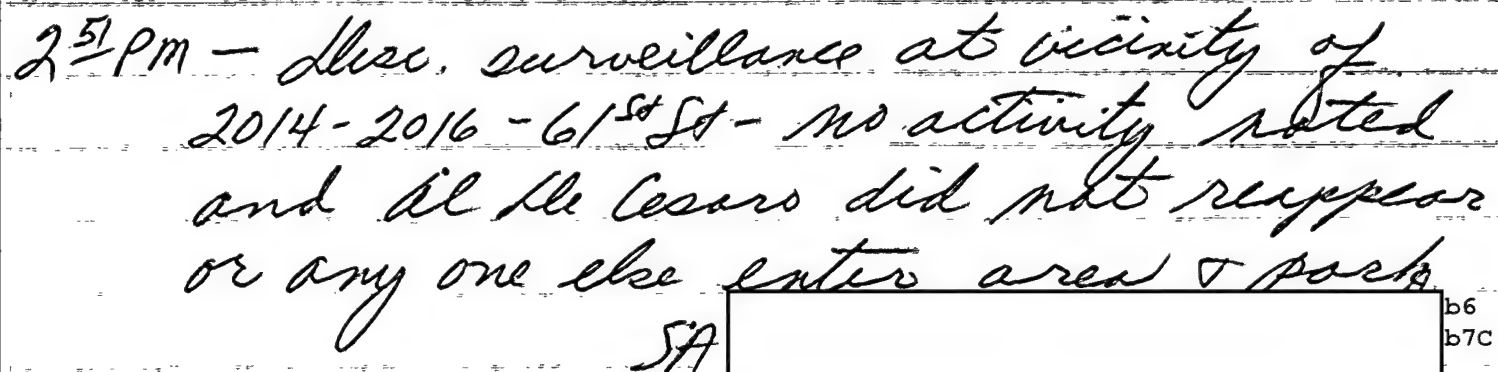 2 51 PM - Disc. surveillance at vicinity of
2014-2016-61st St - no activity noted
and Al De Cesaro did not reappear
or any one else enter area & park.
SA
b6
b7C